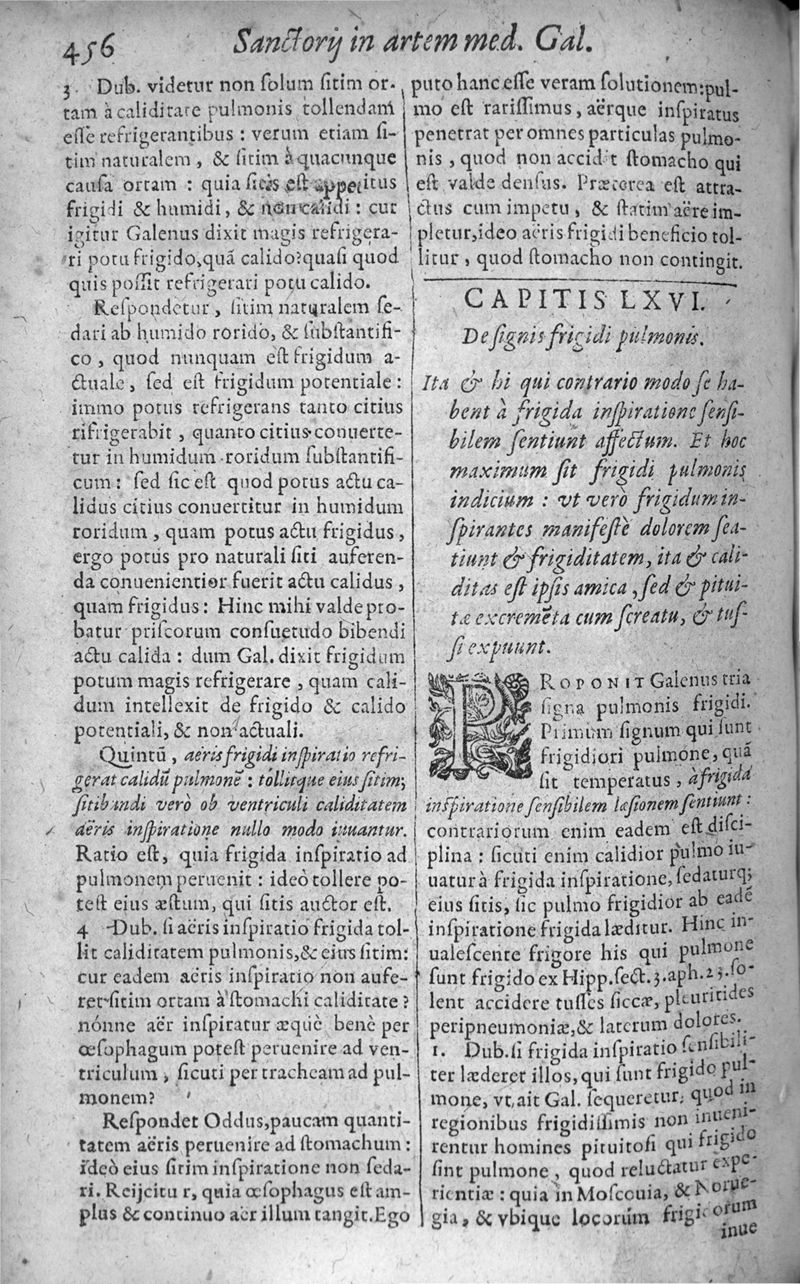 456 Sanctorij in artem med. Gal.
3. Dub. videtur non ſolum ſitim or-
tam à caliditate pulmonis tollendam
eſſe refrigerantibus : verum etiam ſi-
tim naturalem , & ſitim à quacunque
cauſa ortam : quia ſitis eſt appetitus
frigidi & humidi, & non calidi : cur
igitur Galenus dixit magis refrigera-
ri potu frigido,quã calido?quaſi quod
quis poſſit refrigerari potu calido.
Reſpondetur , ſitim naturalem ſe-
dari ab humido rorido, & ſubſtantifi-
co , quod nunquam eſt frigidum a-
ctuale, ſed eſt frigidum potentiale :
immo potus refrigerans tanto citius
rifrigerabit , quanto citius conuerte-
tur in humidum roridum ſubſtantifi-
cum : ſed ſic eſt quod potus actu ca-
lidus citius conuertitur in humidum
roridum , quam potus actu frigidus ,
ergo potus pro naturali ſiti auferen-
da conuenientior fuerit actu calidus ,
quam frigidus : Hinc mihi valde pro-
batur priſcorum conſuetudo bibendi
actu calida : dum Gal. dixit frigidum
potum magis refrigerare , quam cali-
dum intellexit de frigido & calido
potentiali, & non actuali.
Quintũ , aeris frigidi inſpiratio refri-
gerat calidũ pulmonẽ : tollitque eius ſitim;
ſitibundi verò ob ventriculi caliditatem
aëris inſpiratione nullo modo iuuantur.
Ratio eſt, quia frigida inſpiratio ad
pulmonem peruenit : ideò tollere po-
teſt eius æſtum, qui ſitis auctor eſt.
4 Dub. ſi aëris inſpiratio frigida tol-
lit caliditatem pulmonis,& eius ſitim:
cur eadem aëris inſpiratio non aufe-
ret ſitim ortam à ſtomachi caliditate ?
nónne aër inſpiratur æquè benè per
œſophagum poteſt peruenire ad ven-
triculum , ſicuti per tracheam ad pul-
monem?
Reſpondet Oddus,paucam quanti-
tatem aëris peruenire ad ſtomachum :
ideò eius ſitim inſpiratione non ſeda-
ri. Reijcitur, quia œſophagus eſt am-
plus & continuo aër illum tangit.Ego
puto hanc eſſe veram ſolutionem:pul-
mo eſt rariſſimus, aërque inſpiratus
penetrat per omnes particulas pulmo-
nis , quod non accidit ſtomacho qui
eſt valde denſus. Præterea eſt attra-
ctus cum impetu , & ſtatim aëre im-
pletur,ideo aëris frigidi beneficio tol-
litur , quod ſtomacho non contingit.
CAPITIS LXVI.
De ſignis frigidi pulmonis.
Ita & hi qui contrario modo ſe ha-
bent à frigida inſpiratione ſenſi-
bilem ſentiunt affectum. Et hoc
maximum ſit frigidi pulmonis
indicium : vt verò frigidum in-
ſpirantes manifeſtè dolorem ſen-
tiunt & frigiditatem, ita & cali-
ditas eſt ipſis amica , ſed & pitui-
tæ excremẽta cum ſcreatu, & tuſ-
ſi expuunt.
PROPONIT Galenus tria
ſigna pulmonis frigidi.
Primum ſignum qui ſunt
frigidiori pulmone, quã
ſit temperatus , à frigida
inſpiratione ſenſibilem læſionem ſentiunt :
contrariorum enim eadem eſt diſci-
plina : ſicuti enim calidior pulmo iu-
uatur à frigida inſpiratione, ſedaturq;
eius ſitis, ſic pulmo frigidior ab eadẽ
inſpiratione frigida læditur. Hinc in-
ualeſcente frigore his qui pulmone
ſunt frigido ex Hipp.ſect.3.aph.23.ſo-
lent accidere tuſſes ſiccæ, pleuritides
peripneumoniæ,& laterum dolores.
1. Dub.ſi frigida inſpiratio ſenſibili-
ter læderet illos, qui ſunt frigido pul-
mone, vt ait Gal. ſequeretur, quod in
regionibus frigidiſſimis non inueni-
rentur homines pituitoſi qui frigido
ſint pulmone , quod reluctatur expe-
rientiæ : quia in Moſcouia, & Norue-
gia, & vbique locorum frigidorum
inue